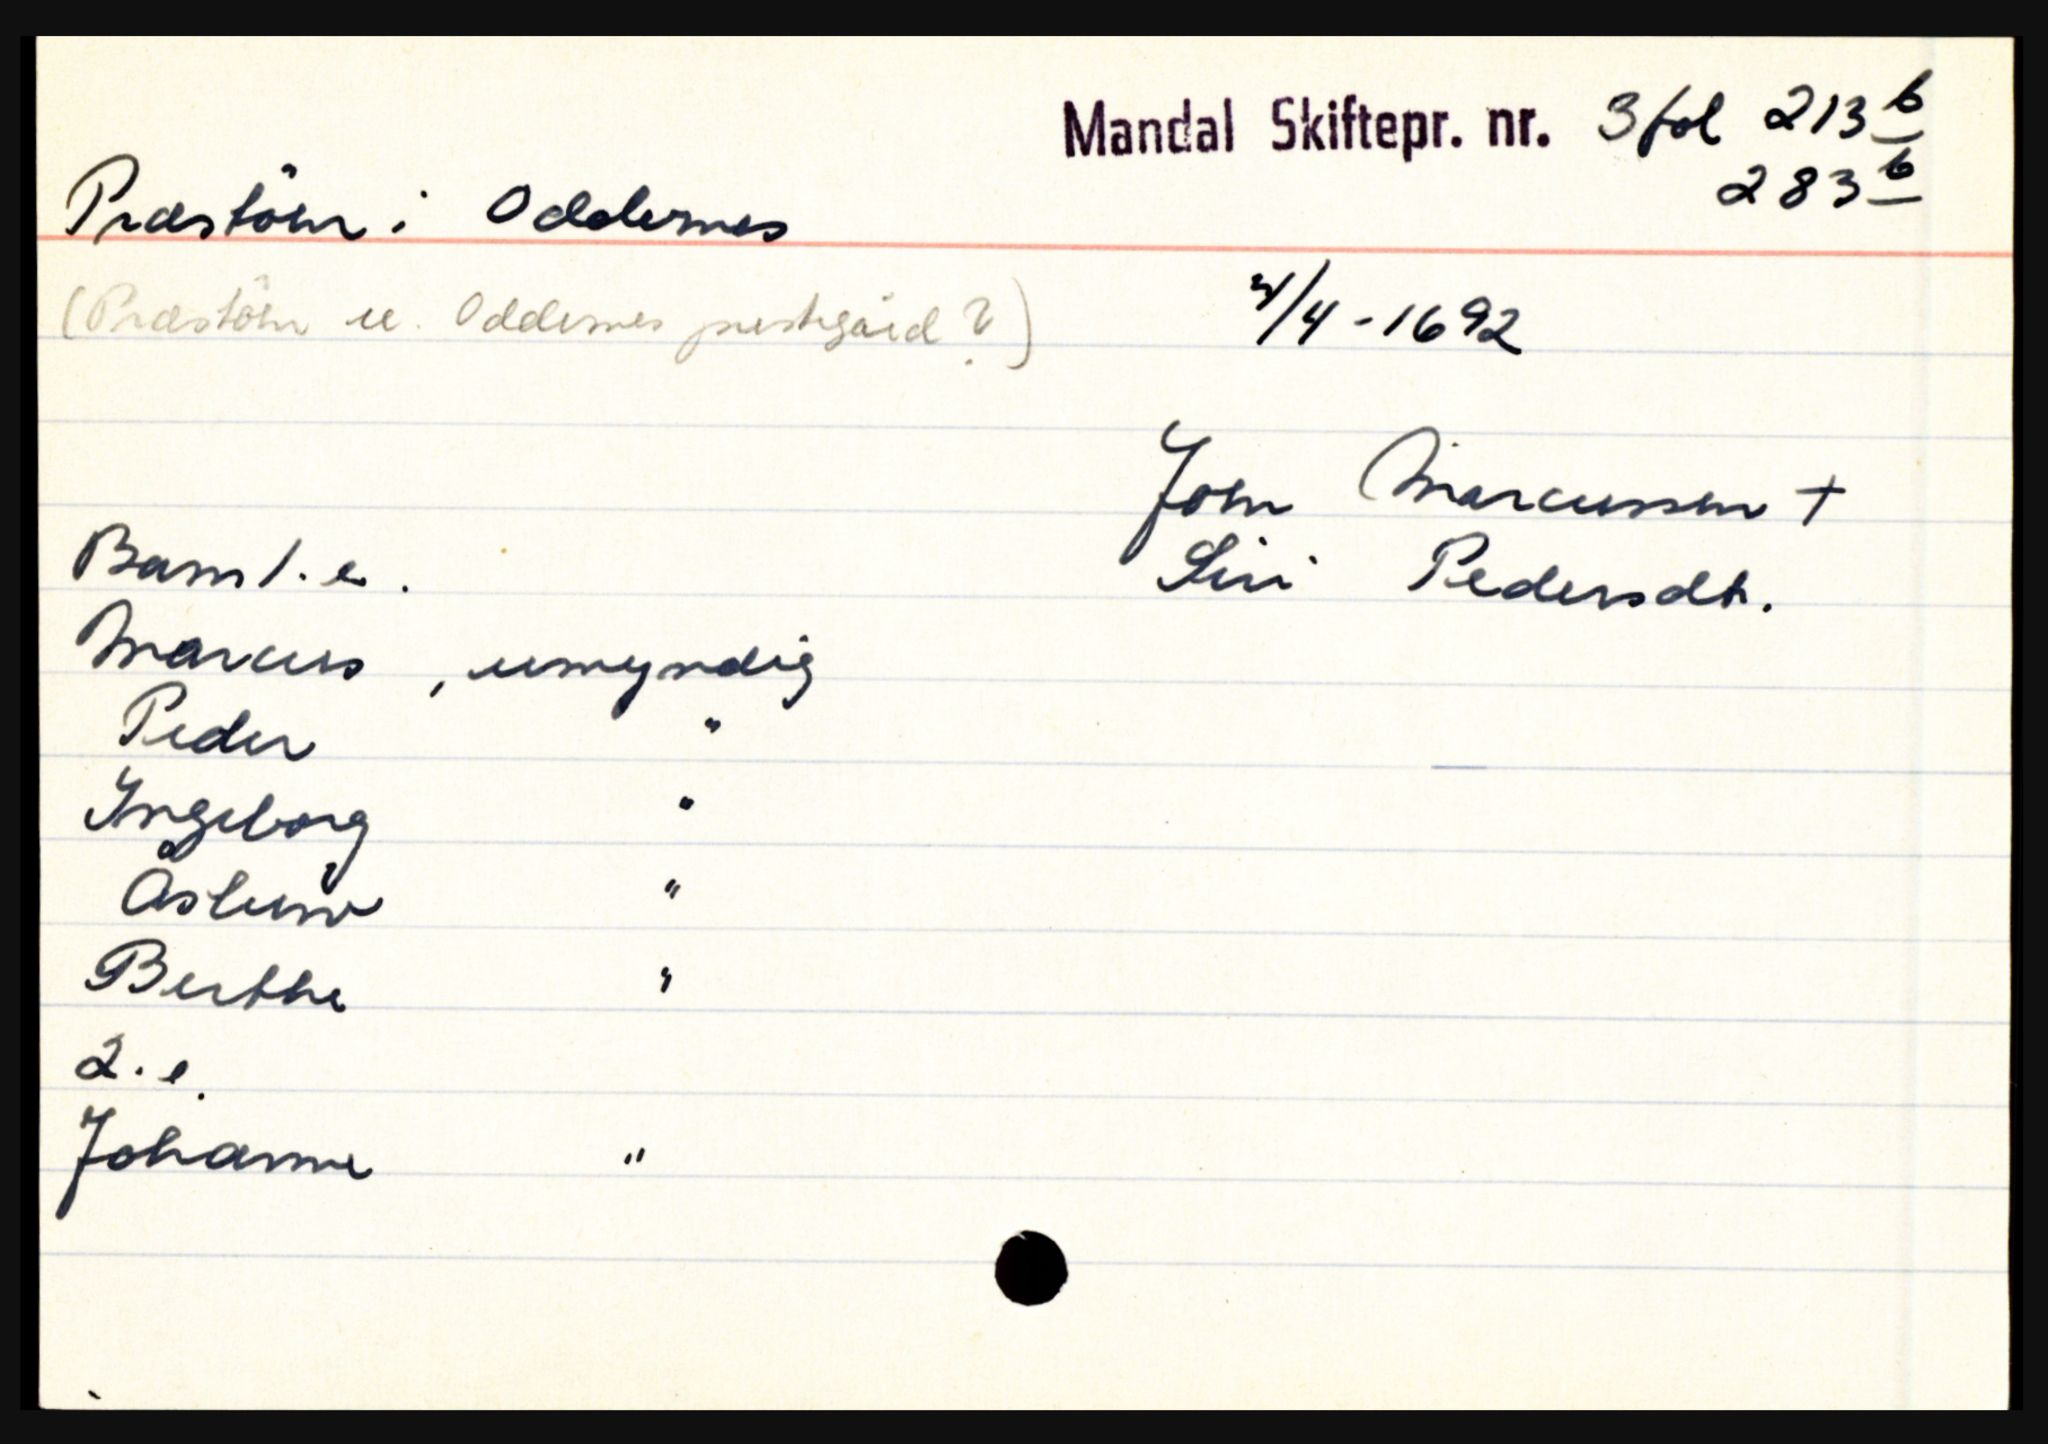 Mandal Skiftepr. nr. 3 fol 213 b
283 b
Præstöen i Oddernes
(Præstöen u. Oddernes prestegård?)
/4-1692
Joen Marcussen +
Siri Pedersdt.
Barn 1. e.
Marcus, umyndig
Peder "
Ingeborg "
Åsleuv "
Berthe "
2. e.
Johanne "